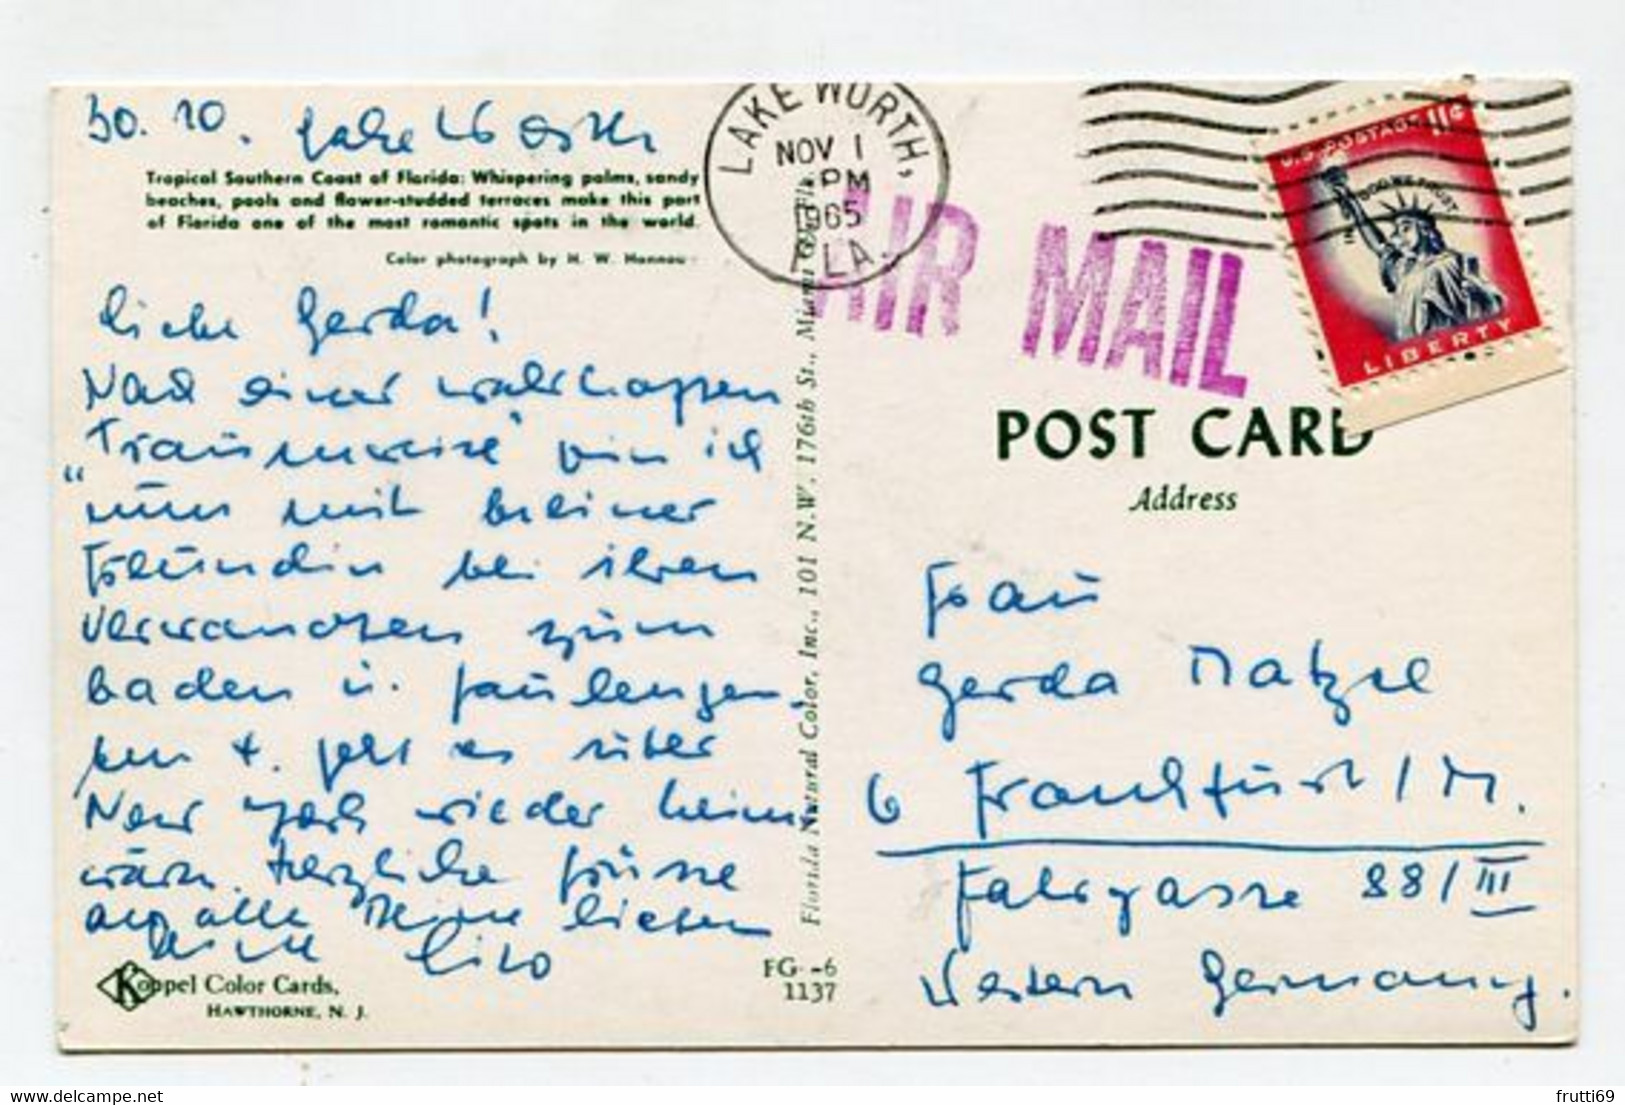 30. 10. Lake Worth
Tropical Southern Coast of Florida: Whispering palms, sandy
beaches, pools and flower-studded terraces make this part
of Florida one of the most romantic spots in the world.
Color photograph by H. W. Hannau
Liebe Gerda!
Nach einer wahrhaften
"Traumreise" bin ich
nun mit meiner
Freundin bei ihren
Verwandten zum
baden u. faulenzen
u. geht es über
New York wieder heim
wärts. Herzliche Grüsse
an alle Deine lieben
Deine Lilo
Koppel Color Cards,
HAWTHORNE, N. J.
FG-6
1137
Florida Natural Color, Inc., 101 N.W. 176th St., Miami Fla.
LAKE WORTH,
NOV 1
PM
1965
FLA.
AIR MAIL
U.S. POSTAGE 11¢
IN GOD WE TRUST
LIBERTY
POST CARD
Address
Frau
Gerda Matzel
6 Frankfurt/M.
Fahrgasse 88/III
Western Germany.
frutti69